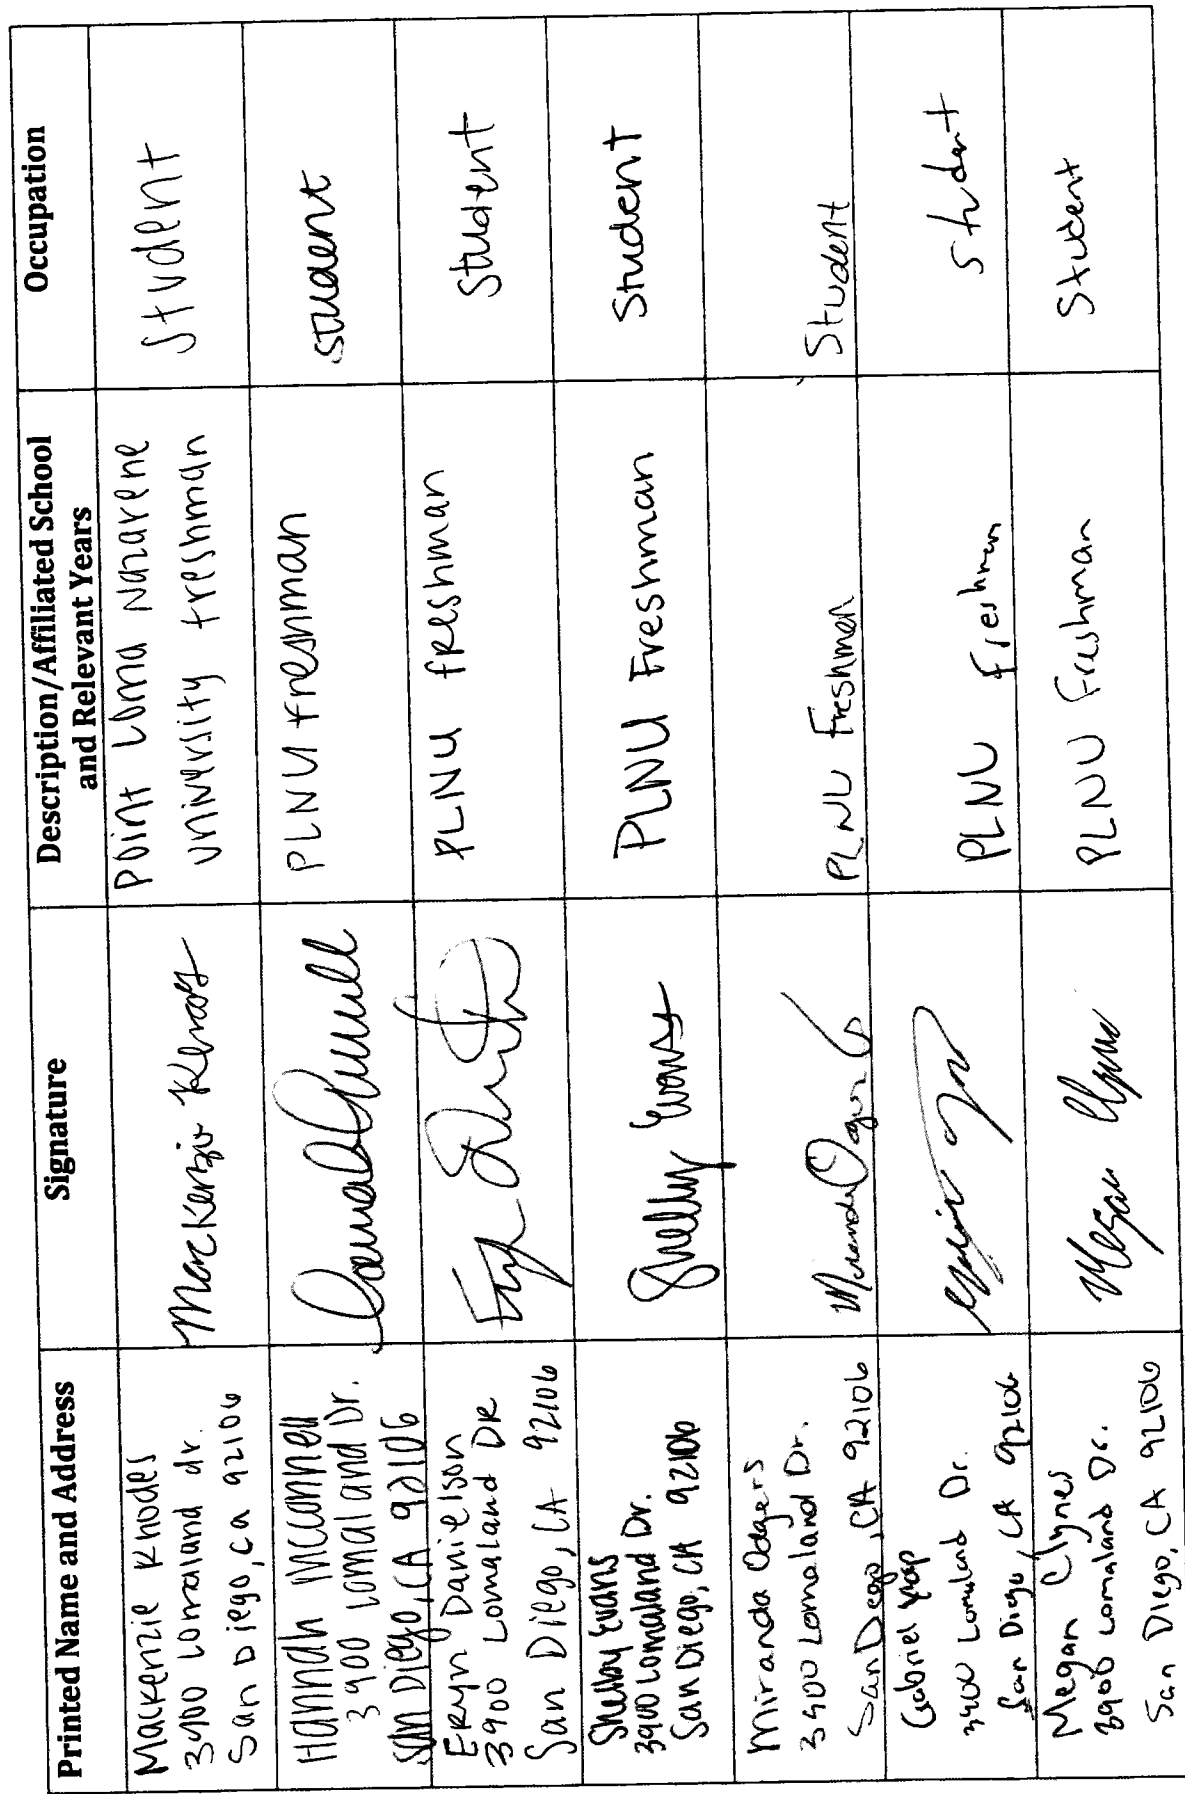 Printed Name and Address
Signature
Description/Affiliated School
and Relevant Years
Occupation
Mackenzie Rhodes
3900 Lomaland dr.
San Diego, ca 92106
Mackenzie
Point Loma Nazarene
University freshman
Student
Hannah McConnell
3900 Lomaland Dr.
San Diego, CA 92106
PLNU freshman
student
Eryn Danielson
3900 Lomaland DR
San Diego, CA 92106
PLNU freshman
Student
Shelby Evans
3900 Lomaland Dr.
San Diego, CA 92106
Shelby Evans
PLNU Freshman
Student
Miranda Odgers
3900 Lomaland Dr.
San Diego, CA 92106
Miranda
PLNU Freshman
Student
Gabriel
3900 Lomaland Dr.
San Diego, CA 92106
PLNU Freshman
Student
Megan Clynes
3900 Lomaland Dr.
San Diego, CA 92106
Megan Clynes
PLNU Freshman
Student